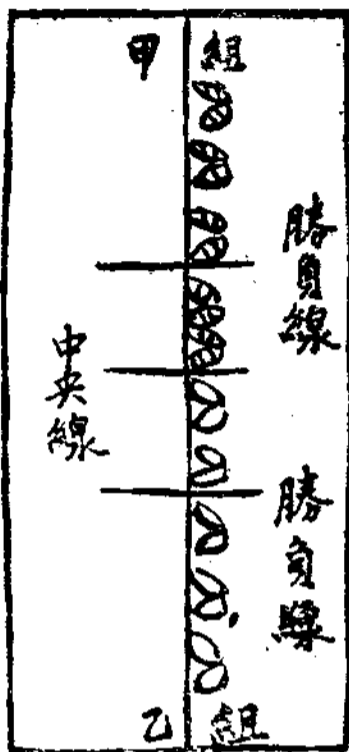 甲組
勝負線
中央線
勝負線
乙組